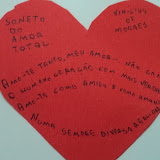 SONETO
DO
AMOR
TOTAL
VINICIUS
DE
MORAES
AMO-TE TANTO, MEU AMOR... NÃO CANTE
O HUMANO CORAÇÃO COM MAIS VERDADE
AMO-TE COMO AMIGO E COMO AMANTE
NUMA SEMPRE DIVERSA REALIDADE